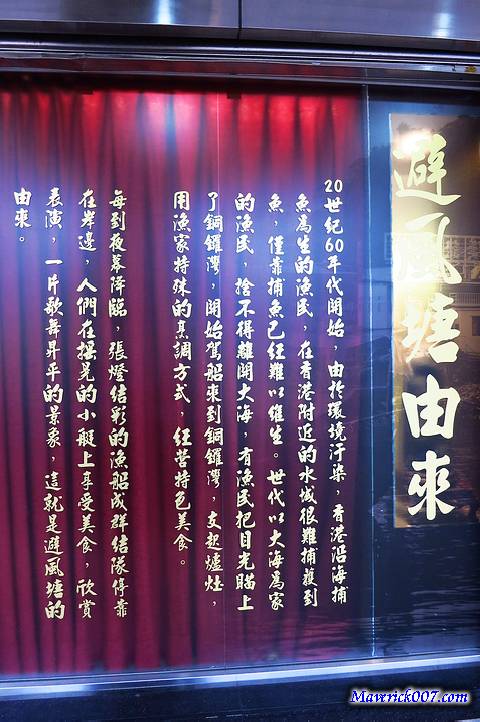 避風塘由來
20世紀60年代開始，由於環境汙染，香港沿海捕
魚為生的漁民，在香港附近的水域很難捕獲到
魚，僅靠捕魚已經難以維生。世代以大海為家
的漁民，捨不得離開大海，有漁民把目光瞄上
了銅鑼灣，開始駕船來到銅鑼灣，支起爐灶，
用漁家特殊的烹調方式，經營特色美食。
每到夜幕降臨，張燈結彩的漁船成群結隊停靠
在岸邊，人們在搖晃的小艇上享受美食，欣賞
表演，一片歌舞昇平的景象，這就是避風塘的
由來。
Maverick007.com